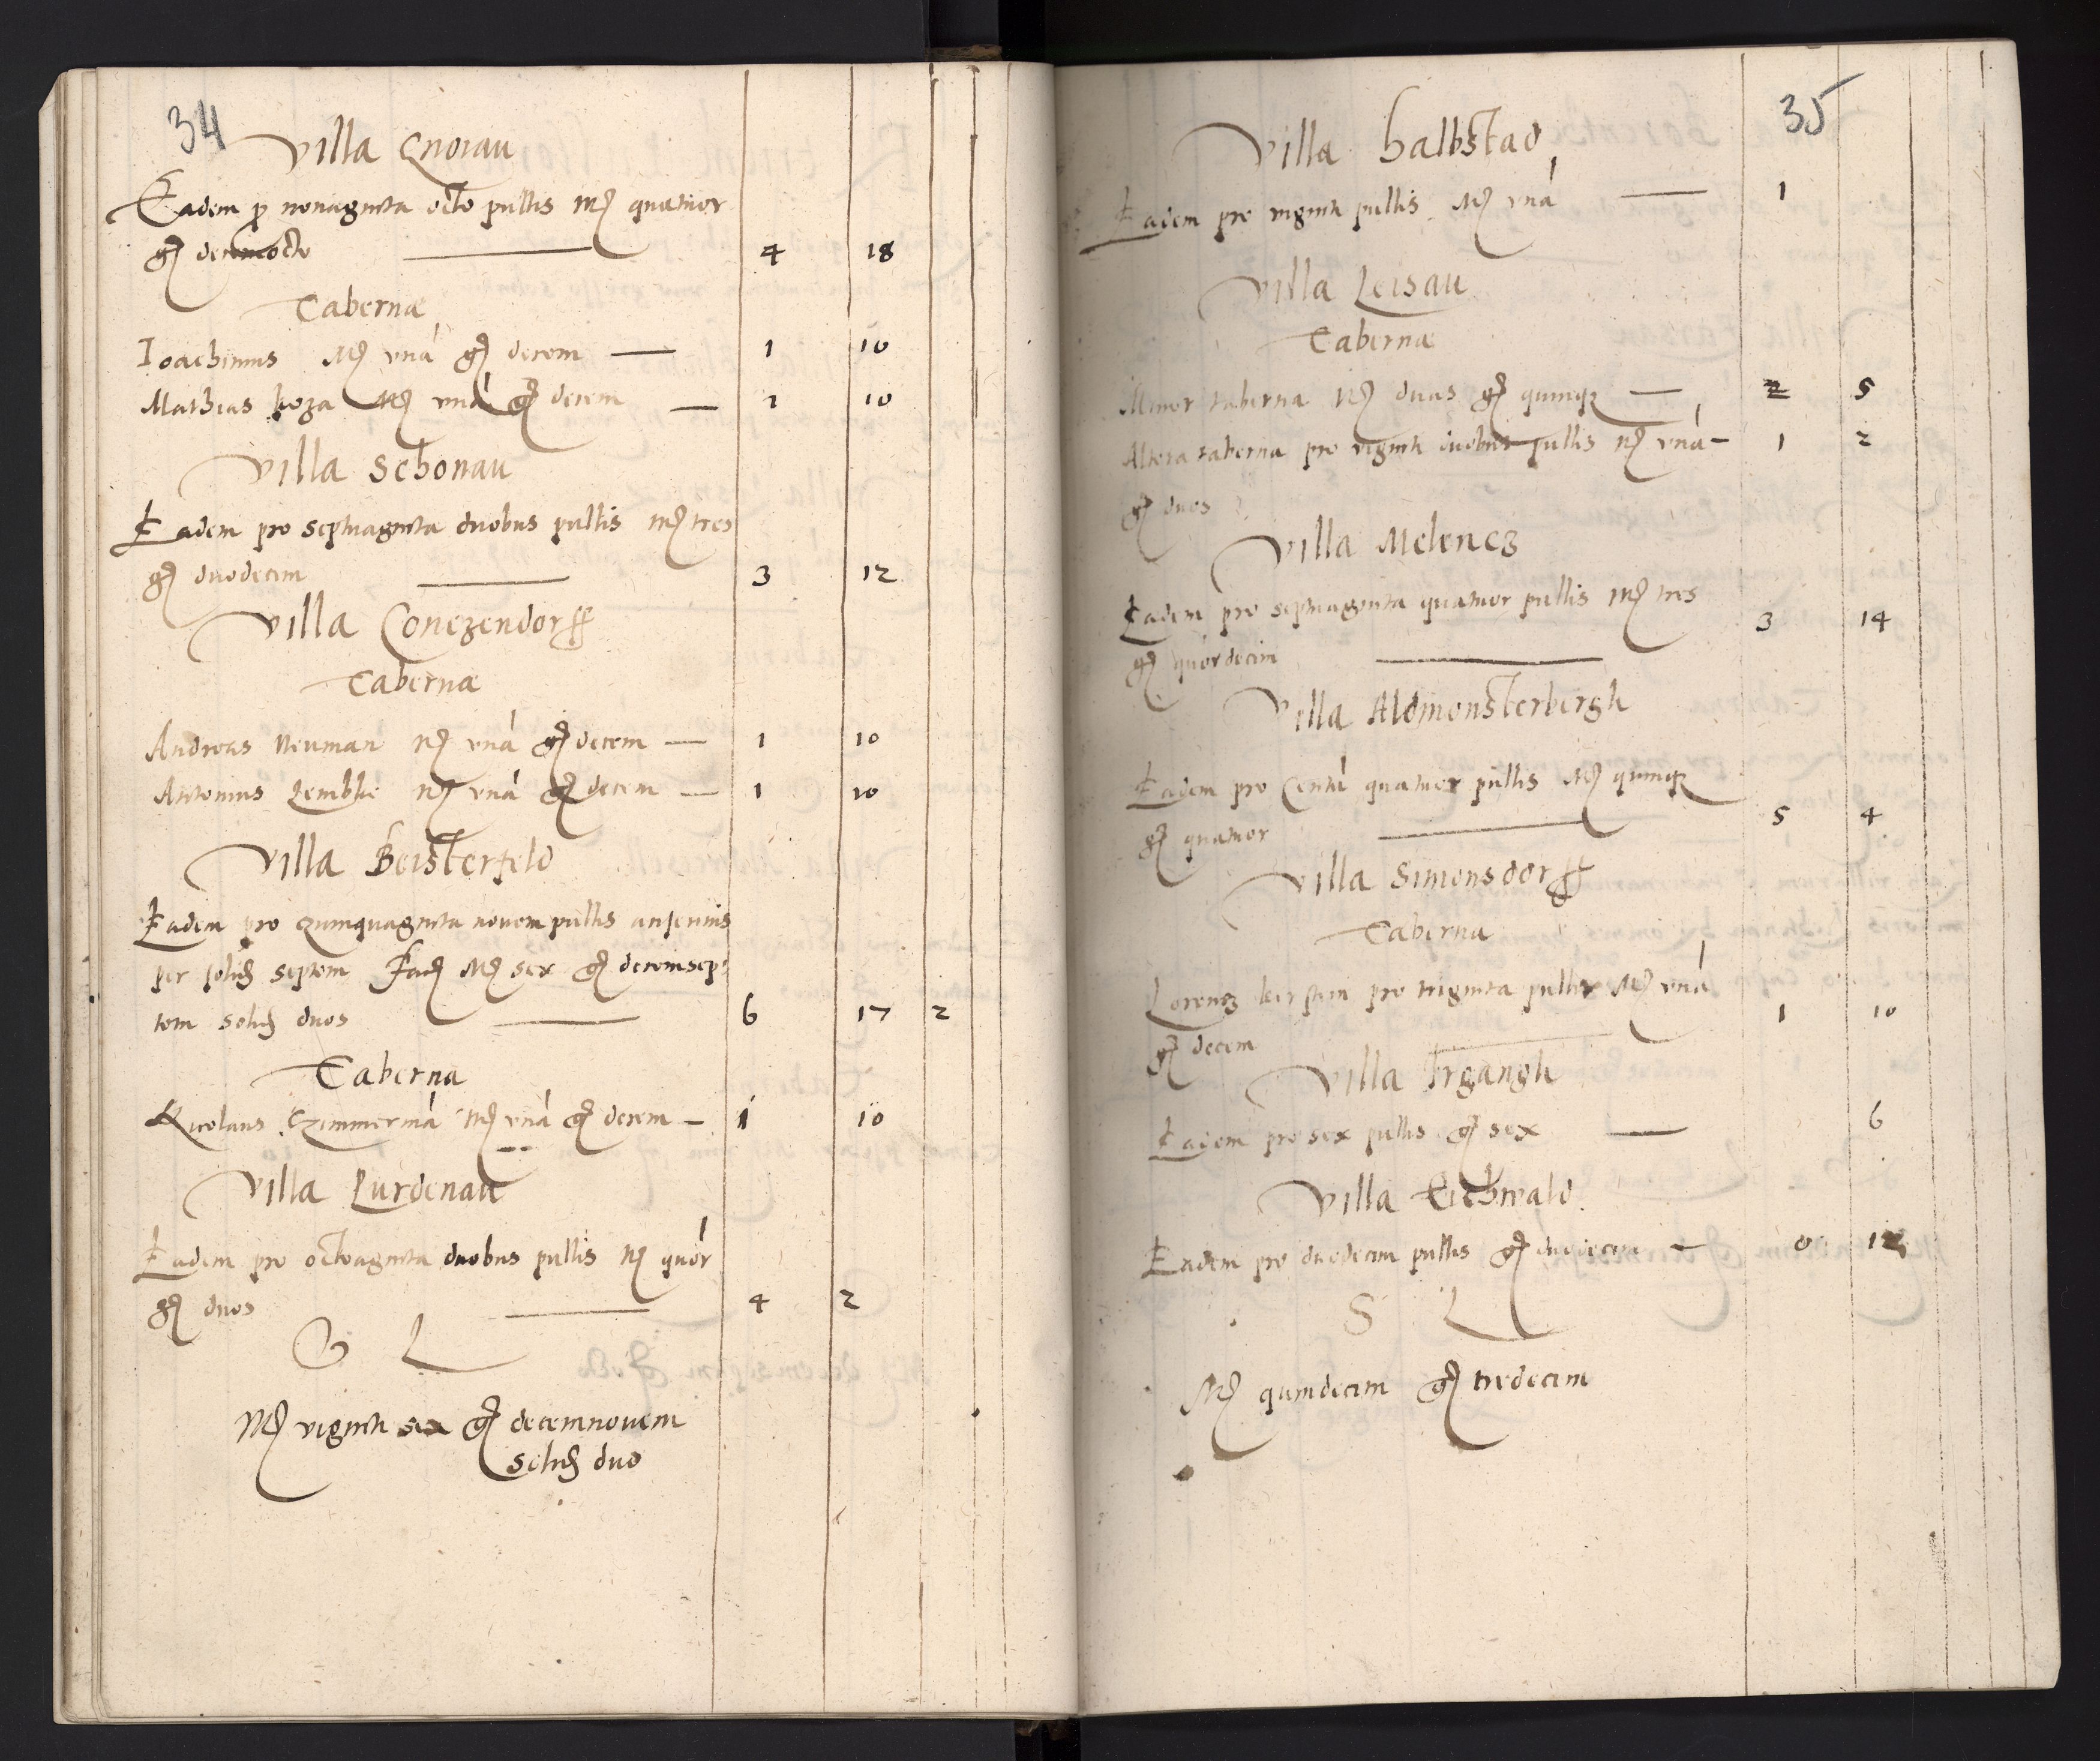 34
Villa Cnoiau
Eadem p nonaginta octo pullis Mͬ quatuor
gͬ decemocto 4 18
Tabernæ
Ioachimus Mͬ vná gͬ decem 1 10
Mathias koza Mͬ vná gͬ decem 1 10
Villa Schonau
Eadem pro septuaginta duobus pullis Mͬ tres
gͬ duodecim 3 12
Villa Conczendorff
Tabernæ
Andreas Neuman Mͬ vná gͬ decem 1 10
Antonius Lembke Mͬ vná gͬ decem 1 10
Villa Beisterfeld
Eadem pro quinquaginta nouem pullis anserinis
per solid septem Facit Mͬ sex gͬ decemsep
tem solid duos 6 17 2
Taberna
Nicolaus Czimmermá Mͬ vná gͬ decem 1 10
Villa Lurdenau
Eadem pro octoaginta duobus pullis Mͬ quór
gͬ duos 4 2
S L
Mͬ viginti sex gͬ decemnouem
solid duo
35
Villa Halbstad
Eadem pro viginti pullis Mͬ vná 1
Villa Leisau
Tabernæ
Minor taberna Mͬ duas gͬ quinqꝫ 2 5
Altera taberna pro viginti duobus pullis Mͬ vná 1 2
gͬ duos
Villa Melencz
Eadem pro septuaginta quatuor pullis Mͬ tres
gͬ quórdecim 3 14
Villa Aldmonsterbergh
Eadem pro Centú quatuor pullis Mͬ quinqꝫ
gͬ quatuor 5 4
Villa Simonsdorff
Taberna
Lorencz pro triginta pullis Mͬ vná
gͬ decem 1 10
Villa Irgangh
Eadem pro sex pullis gͬ sex 6
Villa Eichwald
Eadem pro duodecim pullis gͬ duodecim 0 12
S L
Mͬ quindecim gͬ tredecim